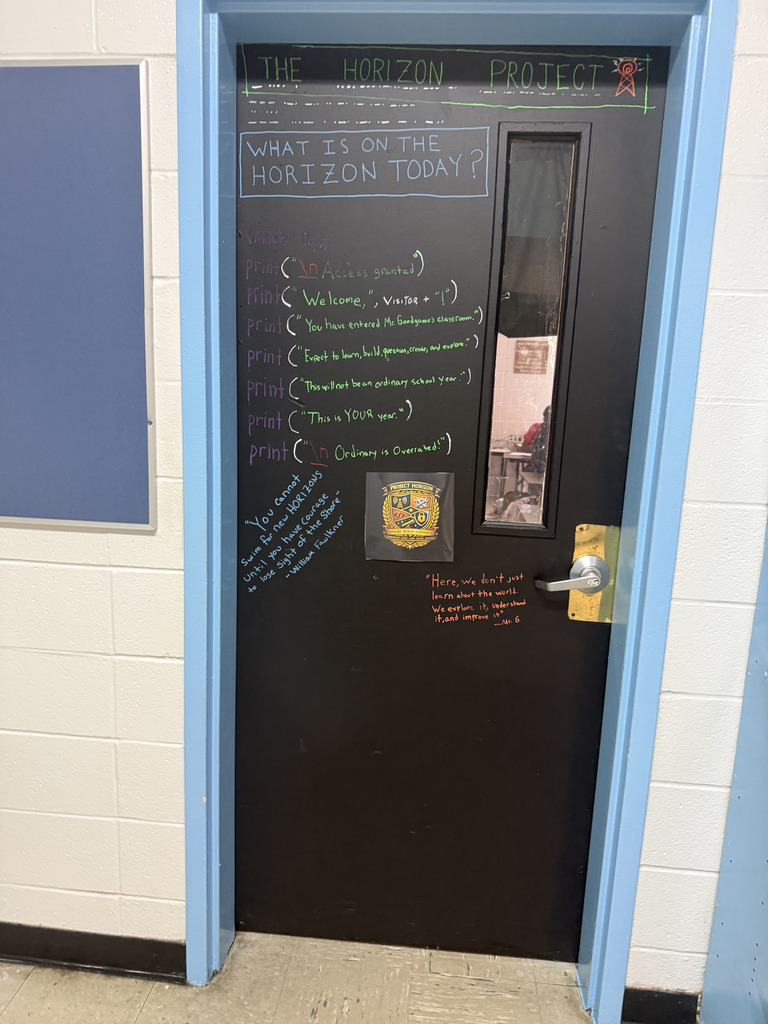 THE HORIZON PROJECT
WHAT IS ON THE
HORIZON TODAY?
print("\n Access granted")
print("Welcome,", VISITOR + "!")
print("You have entered Mr. Goodgame's classroom.")
print("Expect to learn, build, question, create, and explore.")
print("This will not be an ordinary school year.")
print("This is YOUR year.")
print("\n Ordinary is Overrated!")
"You cannot
swim for new HORIZONS
until you have courage
to lose sight of the Shore"
- William Faulkner
PROJECT HORIZON
"Here, we don't just
learn about the world.
We explore it, understand
it, and improve it"
—Mr. G